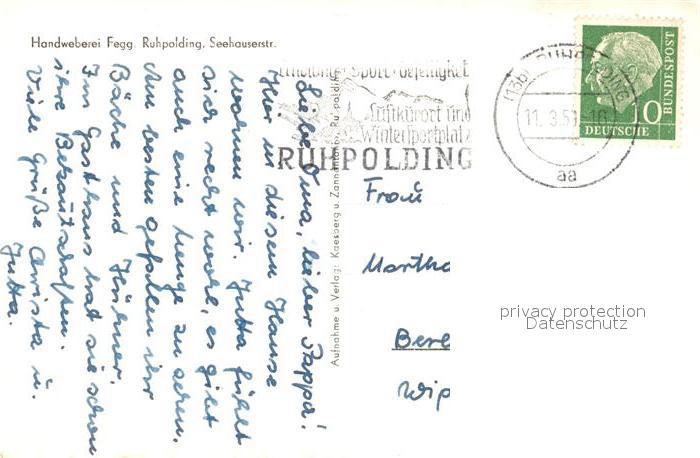 Handweberei Fegg. Ruhpolding, Seehauserstr.
Liebe Oma, lieber Pappa!
Hier in diesem Hause
wohnen wir. Jutta fühlt
sich recht wohl, es gibt
auch eine Menge zu sehen.
Am besten gefallen ihr
Bäche und Hühner.
Im Gasthaus hat sie schon
ihre Bekanntschaften.
Viele Grüße Christa u.
Jutta.
Aufnahme u. Verlag: Kaesberg u. Zannantonio, Ruhpolding
Erholung Sport Geselligkeit
Luftkurort und
Wintersportplatz
RUHPOLDING
(13b) RUHPOLDING
11.3.5
aa
10
DEUTSCHE
BUNDESPOST
Frau
Martha
Berl
Wip
privacy protection
Datenschutz